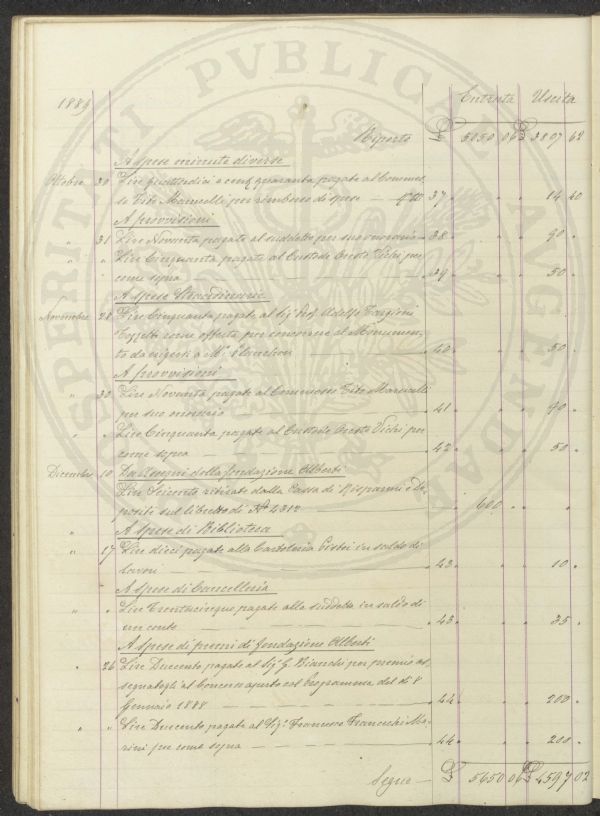 PROSPERITATI PVBLICAE AVGENDAE
1889 Entrata Uscita
Riporto £ 5050 06 £ 3807 62
A spese minute diverse
Ottobre 30 Lire quattordici e cent. quaranta pagate al Commes-
so Tito Marucelli per rimborso di spese — N° 37 " " " 14 40
A provvisioni
" 31 Lire Novanta pagate al suddetto per suo onorario — 38 " " " 90 "
" " Lire Cinquanta pagate al Custode Oreste Vichi per
come sopra — 39 " " " 50 "
A spese straordinarie
Novembre 28 Lire Cinquanta pagate al Sig. Prof. Adolfo Targioni
Tozzetti come offerta per concorrere al Monumen-
to da erigersi a — 40 " " " 50 "
A provvisioni
" 30 Lire Novanta pagate al Commesso Tito Marucelli
per suo onorario — 41 " " " 90 "
" " Lire Cinquanta pagate al Custode Oreste Vichi per
come sopra — 42 " " " 50 "
Dicembre 10 Da Assegni della fondazione Alberti
Lire Seicento ritirate dalla Cassa di Risparmi e De-
positi sul libretto di N° 4312 — " 600 " " "
A spese di Biblioteca
" 17 Lire dieci pagate alla Cartoleria Pistoi in saldo di
lavori — 43 " " " 10 "
A spese di Cancelleria
" " Lire Trentacinque pagate alla suddetta in saldo di
un conto — 43 " " " 35 "
A spese di premi di fondazione Alberti
" 26 Lire Duecento pagate al Sig. G. Bianchi per premio as-
segnatogli al Concorso aperto col Programma del dì 8
Gennaio 1888 — 44 " " " 200 "
" " Lire Duecento pagate al Sig. Francesco Franceschi Ma-
rini per come sopra — 44 " " " 200 "
Segue — £ 5650 06 £ 4597 02